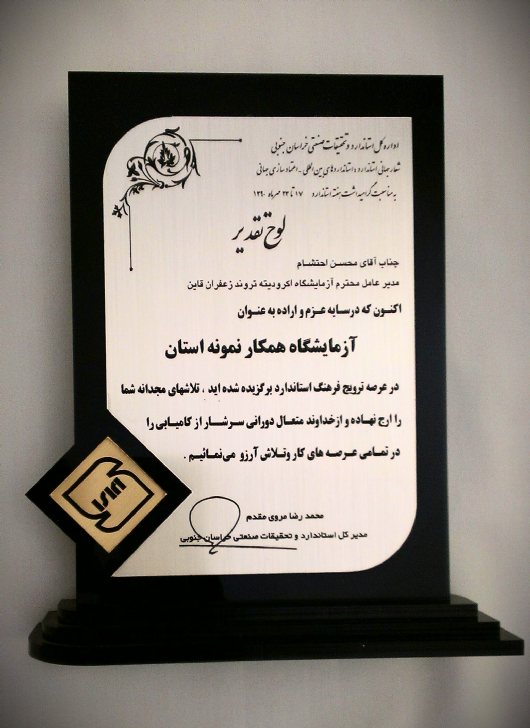 اداره کل استاندارد و تحقیقات صنعتی خراسان جنوبی
شعار جهانی استاندارد: استانداردهای بین المللی - اعتمادسازی جهانی
به مناسبت گرامیداشت هفته استاندارد ۱۷ تا ۲۳ مهرماه ۱۳۹۰
لوح تقدیر
جناب آقای محسن احتشام
مدیر عامل محترم آزمایشگاه اکرودیته تروند زعفران قاین
اکنون که درسایه عزم و اراده به عنوان
آزمایشگاه همکار نمونه استان
در عرصه ترویج فرهنگ استاندارد برگزیده شده اید ، تلاشهای مجدانه شما
را ارج نهاده و ازخداوند متعال دورانی سرشار از کامیابی را
در تمامی عرصه های کار وتلاش آرزو می‌نمائیم .
محمد رضا مروی مقدم
مدیر کل استاندارد و تحقیقات صنعتی خراسان جنوبی
ISIRI